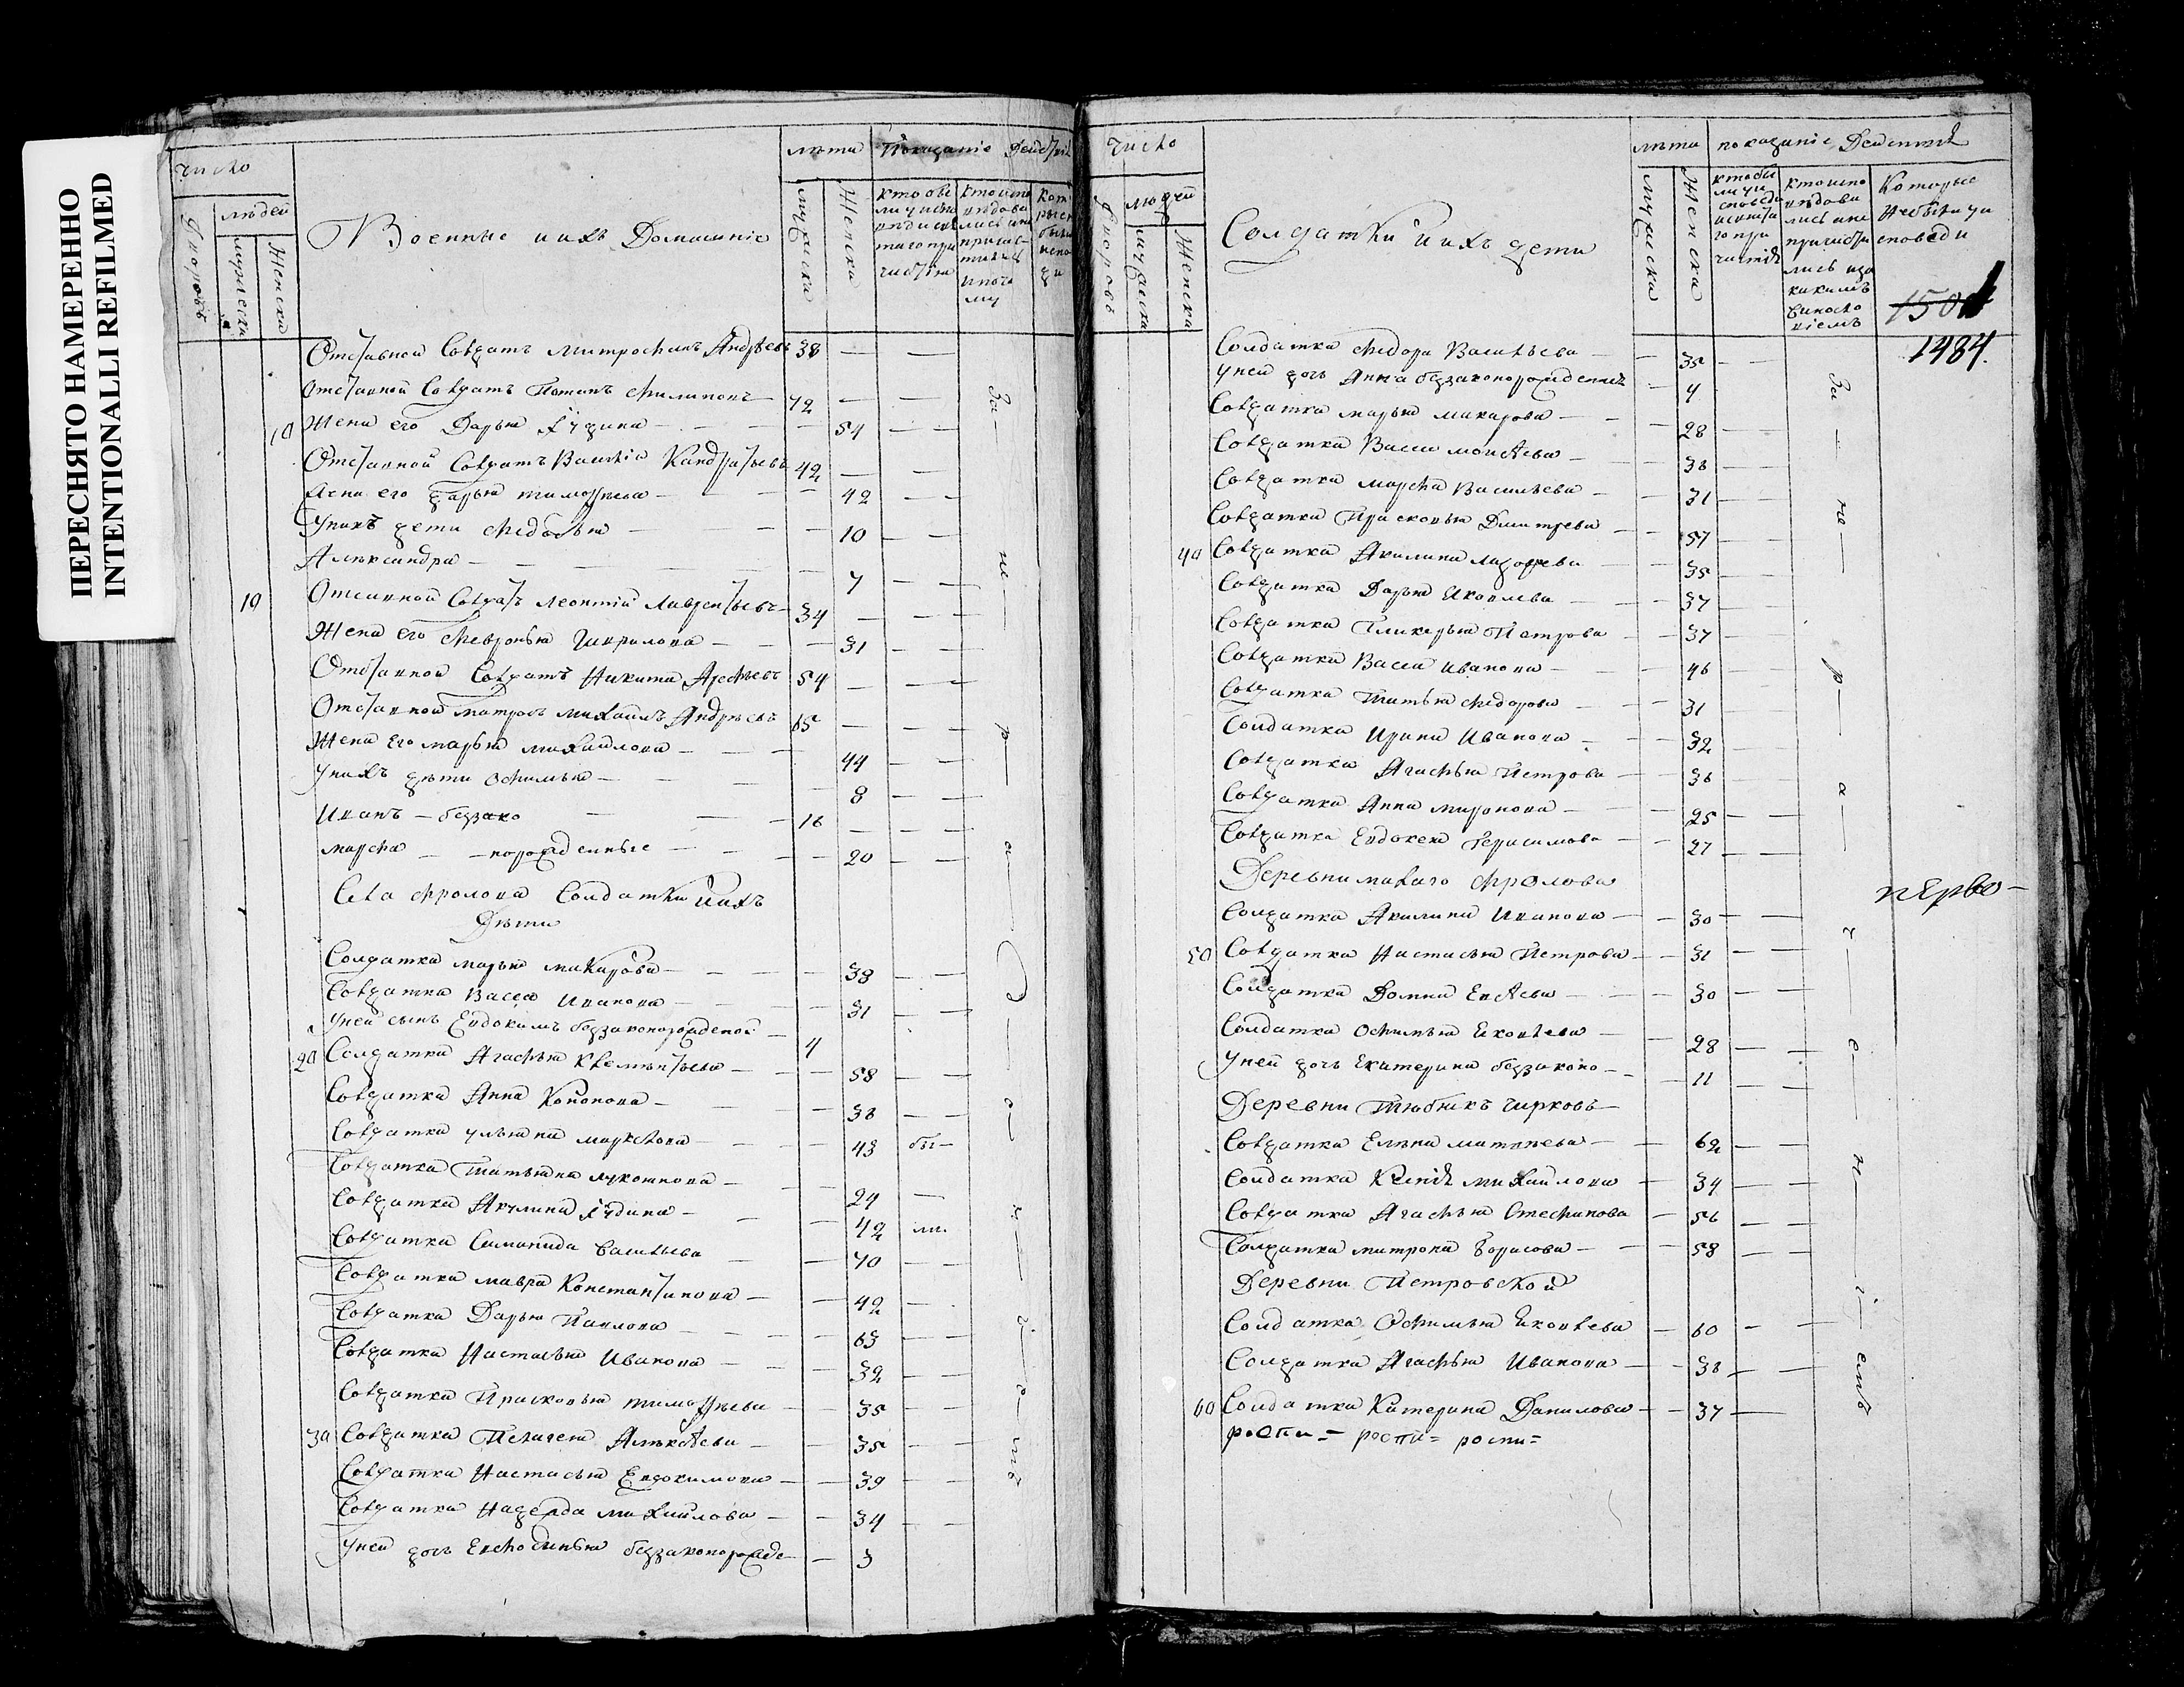 ПЕРЕСНЯТО НАМЕРЕННО
INTENTIONALLI REFILMED
число
людей
мужеска
Женска
Военные и ихъ Домашніе
лѣта
Показаніе
мужеска
Женска
Отставной Солдатъ Митрофанъ Андрѣевъ 38 — —
Отставной Солдатъ Потапъ Филиповъ 72 — —
10 Жена его Дарья — — 54 — —
Отставной Солдатъ Василій Кандратьевъ 42 — —
Жена его Дарья тимофѣева — — 42 — —
Унихъ дети Федосья — — 10 — —
Алѣксандра — — 7 — —
10 Отставной Солдатъ Леонтій Лаврентьевъ 34 —
Жена его Февронья Гаврилова — — 31 — —
Отставной Солдатъ Никита Арефьевъ 54 — —
Отставной матросъ михаилъ Андрѣевъ 65 — —
Жена Его марья михаилова — — 44 — —
Унихъ дѣти Офимья — — 8 — —
Иванъ — беззако — 16 — —
марфа — норожденные — — 20 — —
Села фролова Солдатки и ихъ
Дѣти
Солдатка марья макарова — — 38 — —
Солдатка Васса Иванова — — 31 — —
Уней сынъ Евдокимъ беззаконорожденой — 4
20 Солдатка Агафья Клемѣнтьева — — 58 — —
Солдатка Анна Кононова — — 38 — —
Солдатка ульяна маркелова — — 43 бы —
Солдатка Татьяна — — 24 —
Солдатка Акулина — — 42 ли.
Солдатка Саманида васильева — 40 — —
Солдатка мавра Константинова — — 42 —
Солдатка Дарья Павлова — — 63 — —
Солдатка Настасья Иванова — — 32 — —
Солдатка Прасковья тимофѣева — 35 — —
30 Солдатка Пелагея Алѣксѣева — — 35 — —
Солдатка Настасья Евдокимова — — 39 — —
Солдатка Надежда михаилова — — 34 — —
Уней дочь беззаконорожде — — 3
За — не — р — а —
число
людей
мужеска
Женска
Солдатки и ихъ дети
лѣта
показаніе
мужеска
Женска
Которые
небыли уи
сповѣди
1484.
Солдатка Федора Васильева — — 35 — —
Уней дочь Анна беззаконорожденная — 4
Солдатка марья макарова — — 28 — —
Солдатка Васса моисѣева — — 38 — —
Солдатка марфа Васильева — — 31 — —
Солдатка Прасковья Дмитрева — — 57 — —
40 Солдатка Акилина — — 35 — —
Солдатка Дарья Яковлева — — 37 — —
Солдатка Гликерья Петрова — — 37 — —
Солдатка Васса иванова — — 46 — —
Солдатка Татьяна федорова — — 31 — —
Солдатка Ирина Иванова — — 32 — —
Солдатка Агафья Петрова — — 36 — —
Солдатка Анна миронова — — 25 — —
Солдатка Евдокея Герасимова — — 27 — —
Деревни малаго фролова
Солдатка Акилина Иванова — — 30 — —
50 Солдатка Настасья Петрова — — 31 — —
Солдатка Домна — — 30 — —
Солдатка Офимья Яковлева — — 28 — —
Уней дочь Екатерина беззаконо — — 11 — —
Деревни
Солдатка Елѣна матвѣева — — 62 — —
Солдатка михаилова — 34 — —
Солдатка Агафья Стефанова — 56 — —
Солдатка митрона Борисова — — 58 — —
Деревни Петровской
Солдатка Офимья Яковлева — 60 — —
Солдатка Агафья Иванова — — 38 — —
60 Солдатка Катерина Данилова — — 37 —
роспи = роспи = роспи =
За — не — р — а — ч — е — н — і — емъ
перво —